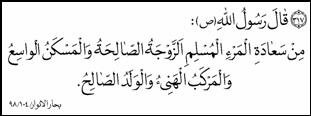 ﴿٣١٧﴾ قَالَ رَسُولُ اللهِ (ص):
مِنْ سَعَادَةِ الْمَرْءِ الْمُسْلِمِ الزَّوْجَةُ الصَّالِحَةُ وَالْمَسْكَنُ الْوَاسِعُ
وَالْمَرْكَبُ الْهَنِیُٔ وَالْوَلَدُ الصَّالِحُ.
بحارالانوار ٩٨/١٠٤